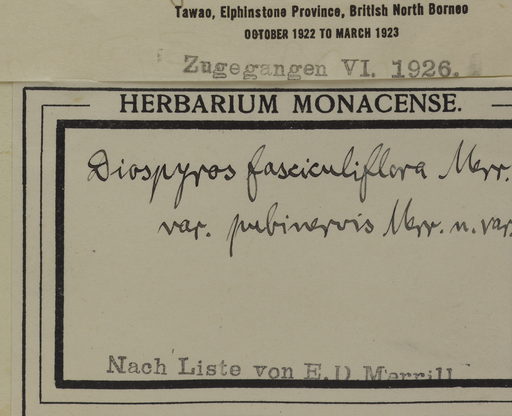 Tawao, Elphinstone Province, British North Borneo
OOTOBER 1922 TO MARCH 1923
Zugegangen VI. 1926.
HERBARIUM MONACENSE.
Diospyros fasciculiflora Merr.
var. pubinervis Merr. n. var.
Nach Liste von E.D Merrill